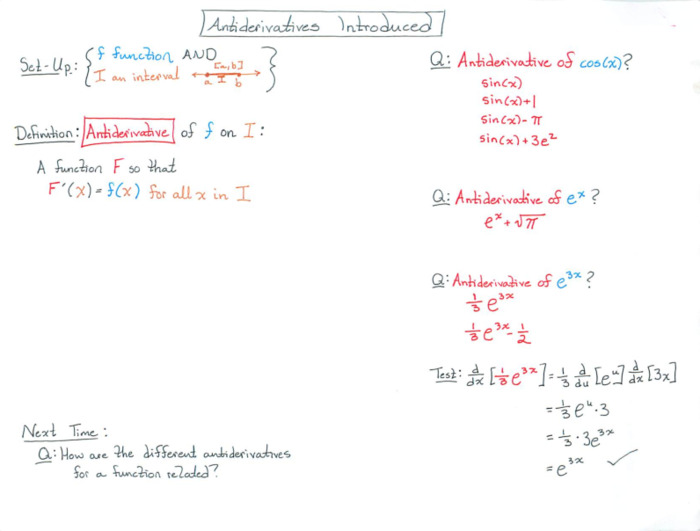 Antiderivatives Introduced
Set-Up: { f function AND
I an interval [a,b] }
a I b
Definition: Antiderivative of f on I:
A function F so that
F'(x) = f(x) for all x in I
Next Time:
Q: How are the different antiderivatives
for a function related?
Q: Antiderivative of cos(x)?
sin(x)
sin(x)+1
sin(x)-π
sin(x)+3e²
Q: Antiderivative of eˣ?
eˣ+√π
Q: Antiderivative of e³ˣ?
1/3 e³ˣ
1/3 e³ˣ - 1/2
Test: d/dx [1/3 e³ˣ] = 1/3 d/du [eᵘ] d/dx [3x]
= 1/3 eᵘ · 3
= 1/3 · 3e³ˣ
= e³ˣ ✓